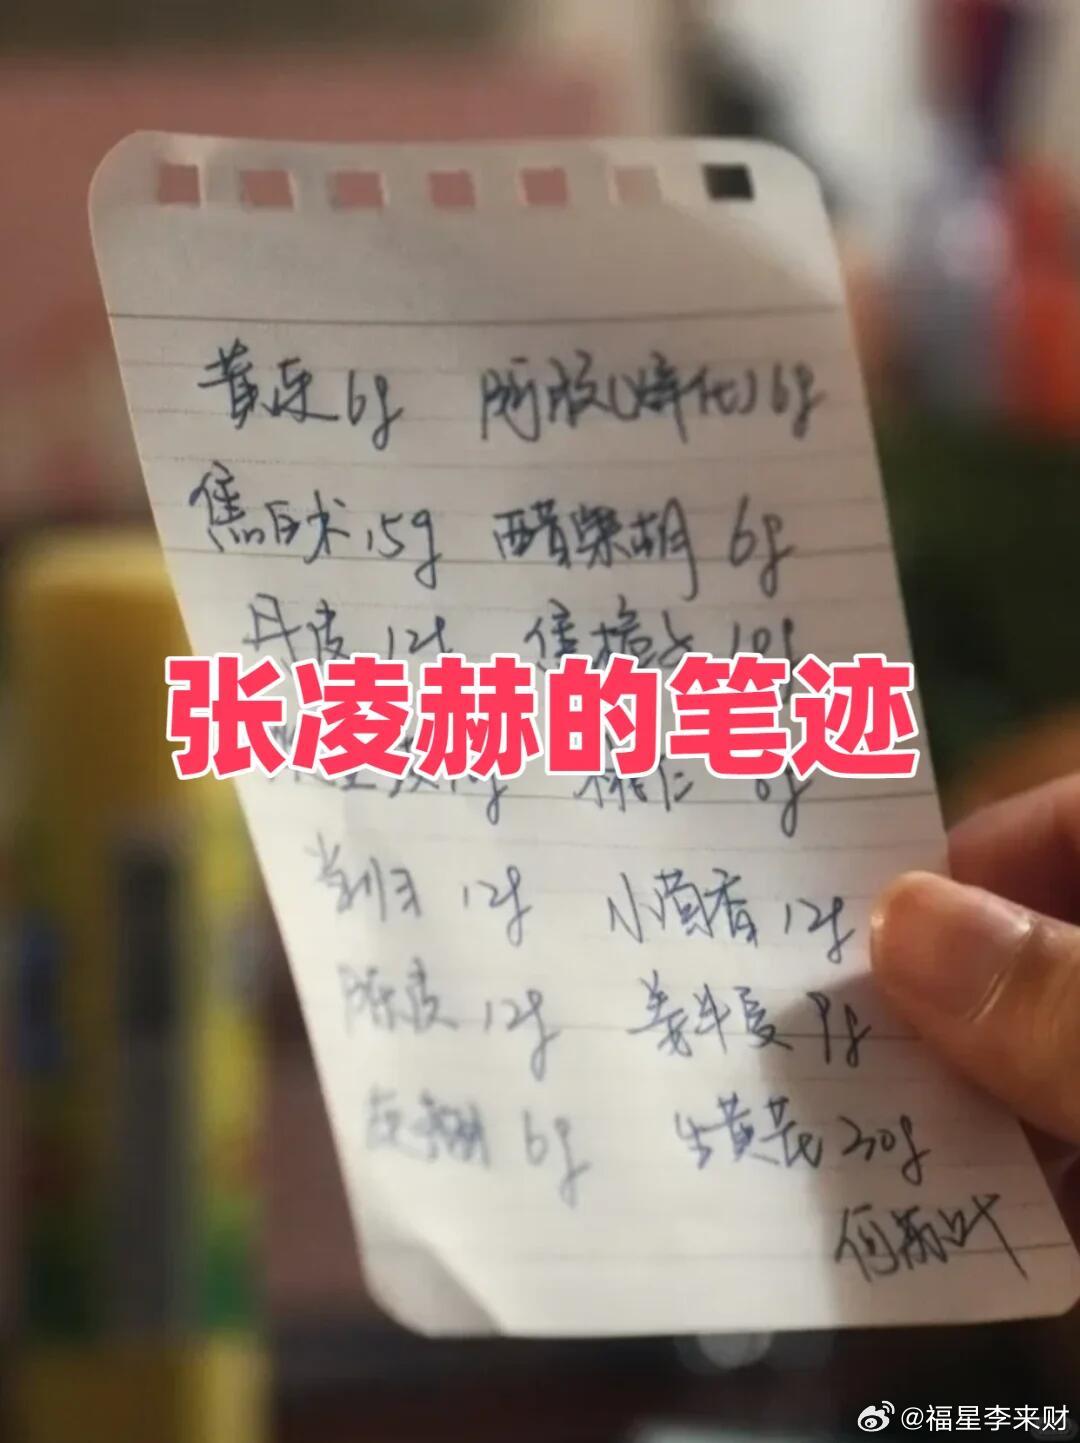 黄连6g 阿胶(烊化)6g
焦白术15g 醋柴胡 6g
丹皮 12g 焦栀子 10g
张凌赫的笔迹
桃仁
当归 12g 小茴香12g
陈皮 12g 姜半夏 9g
6g 生黄芪30g
何苏叶
@福星李来财